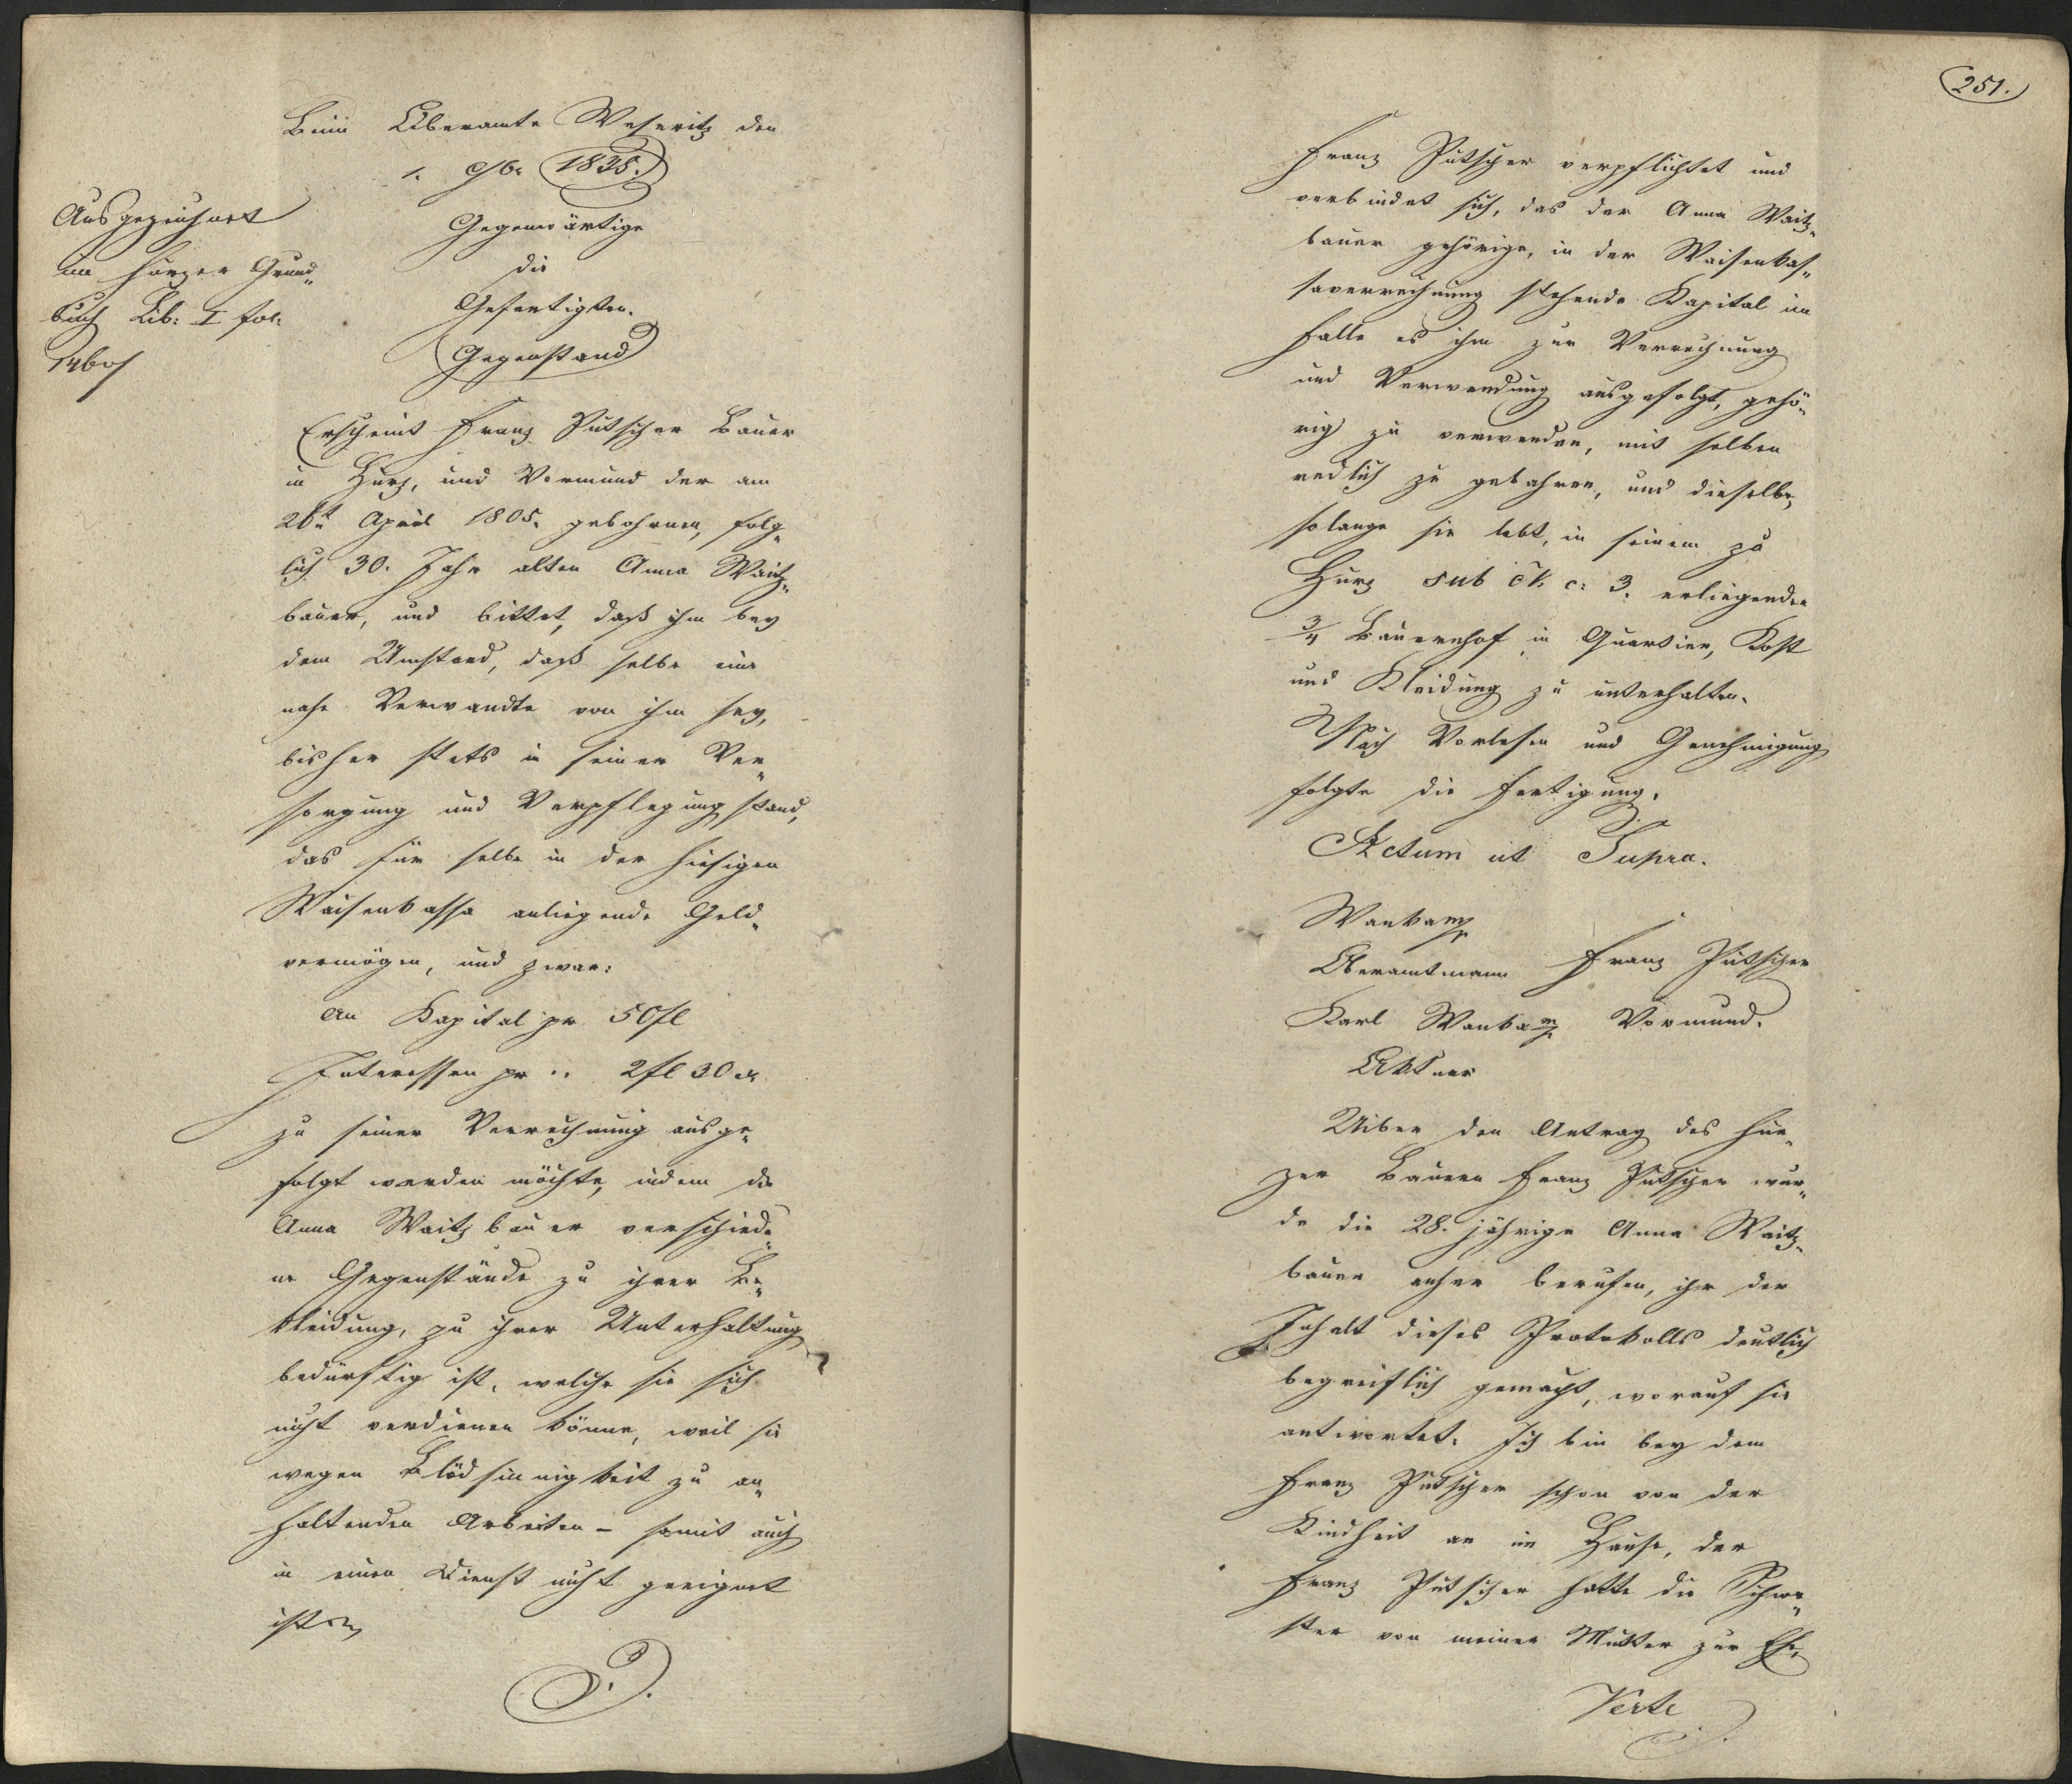 Beim Oberamte Weseritz den
1. 9/br 1835.
Gegenwärtige
die
Gefertigten.
Gegenstand
Ausgezeichnet
im Hurzer Grund„
buch Lib: I fol:
Erscheint Franz Putscher Bauer
in Hurz, und Vormund der am
26t April 1805. gebohrnen, folg„
lich 30. Jahr alten Anna Waitz„
bauer, und bittet, daß ihm bey
dem Umstand, daß selbe eine
nahe Verwandte von ihm sey,
bisher stets in seiner Ver„
sorgung und Verpflegung stand,
das für selbe in der hiesigen
Waisenkassa anliegende Geld„
vermögen, und zwar:
An Kapital pr 50 fl
Interessen pr .. 2 fl 30 xr
zu seiner Verrechnung ausge„
folgt werden möchte, indem die
Anna Waitzbauer verschiede„
ne Gegenstände zu ihrer Be„
kleidung, zu ihrer Unterhaltung
bedürftig ist, welche sie sich
nicht verdienen könne, weil sie
wegen Blödsinnigkeit zu an„
haltenden Arbeiten – somit auch
in einen Dienst nicht geeignet
ist
251.
Franz Putscher verpflichtet und
verbindet sich, das der Anna Waitz„
bauer gehörige, in der Waisenkas„
saverrechnung stehende Kapital im
Falle es ihm zur Verrechnung
und Verwendung ausgefolgt, gehö„
rig zu verwenden, mit selben
redlich zu gebahren, und dieselbe,
solange sie lebt, in seinem zu
Hurz sub N. c: 3. erliegenden
3/4 Bauernhof in Quartier, Kost
und Kleidung zu unterhalten.
Nach Vorlesen und Genehmigung
folgte die Fertigung.
Actum ut Supra.
Wanka mp
Oberamtmann Franz Putscher
Karl Wanka mp Vormund.
Aktuar
Uiber den Antrag des Hur„
zer Bauern Franz Putscher wur„
de die 28. jährige Anna Waitz„
bauer anher berufen, ihr der
Inhalt dieses Protokolls deutlich
begreiflich gemacht, worauf sie
antwortet. Ich bin bey dem
Franz Putscher schon von der
Kindheit an im Hause, der
Franz Putscher hatte die Schwe„
ster von meiner Mutter zur Ehe,
Verte